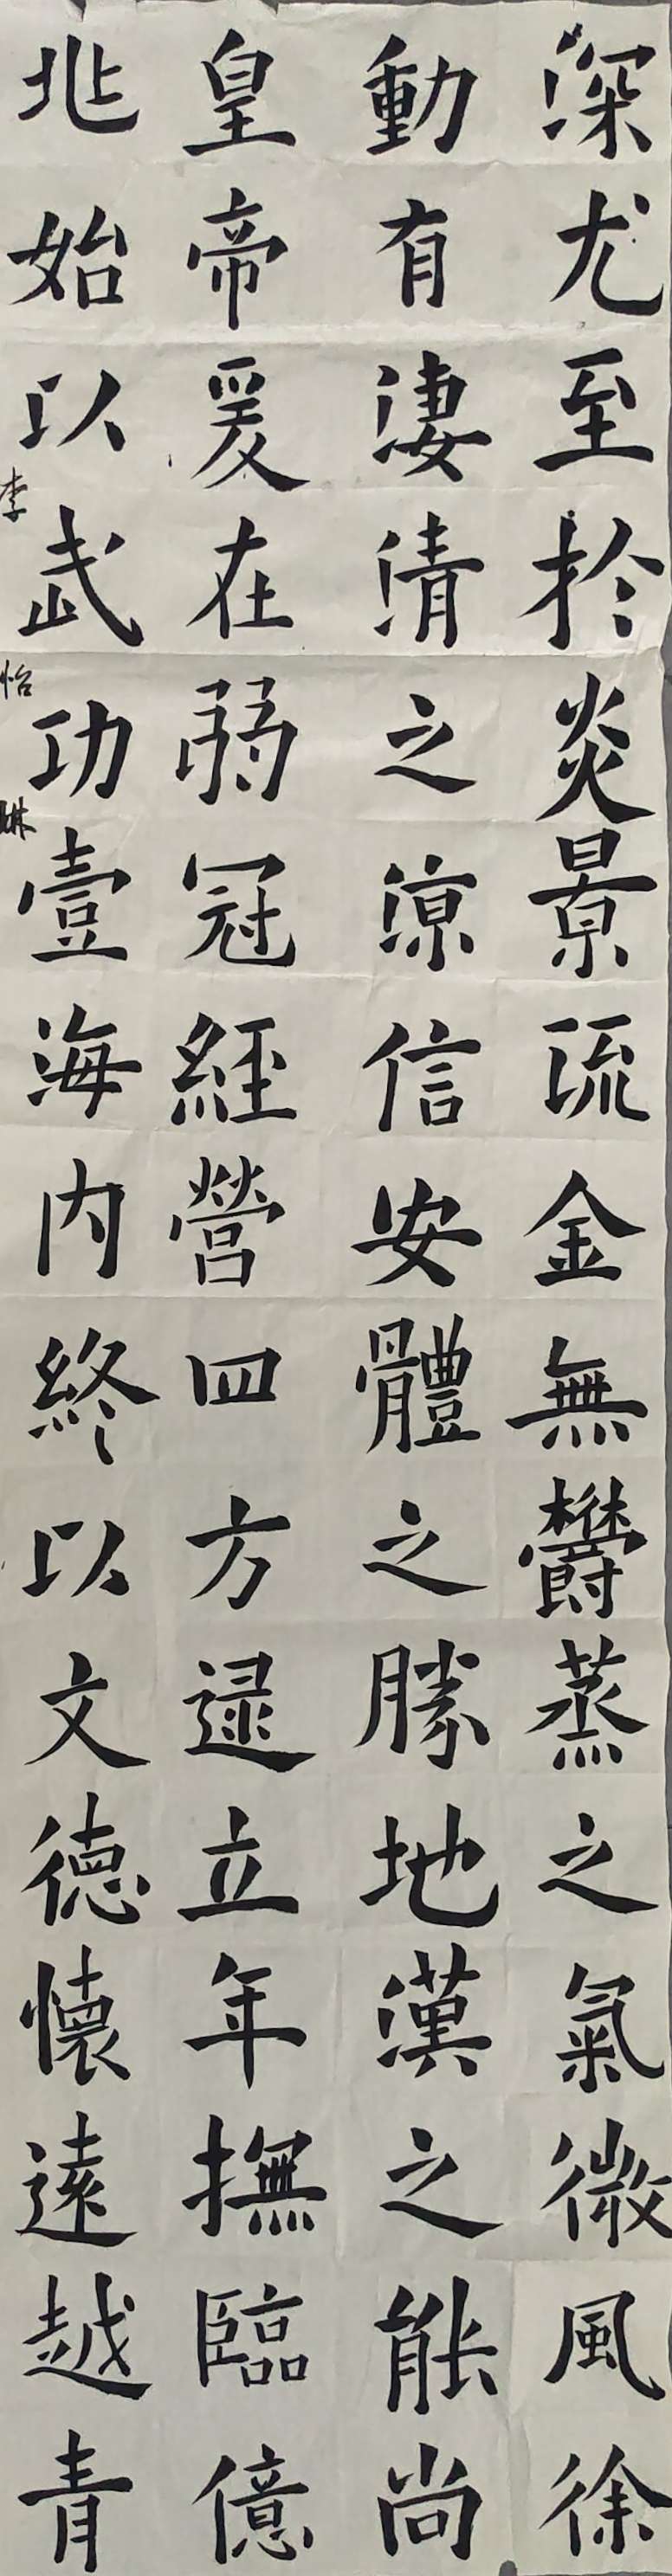 深尤至於炎景流金無鬱蒸之氣微風徐
動有淒清之涼信安體之勝地漢之能尚
皇帝爰在弱冠經營四方逮立年撫臨億
兆始以武功壹海内終以文德懷遠越青
李怡琳